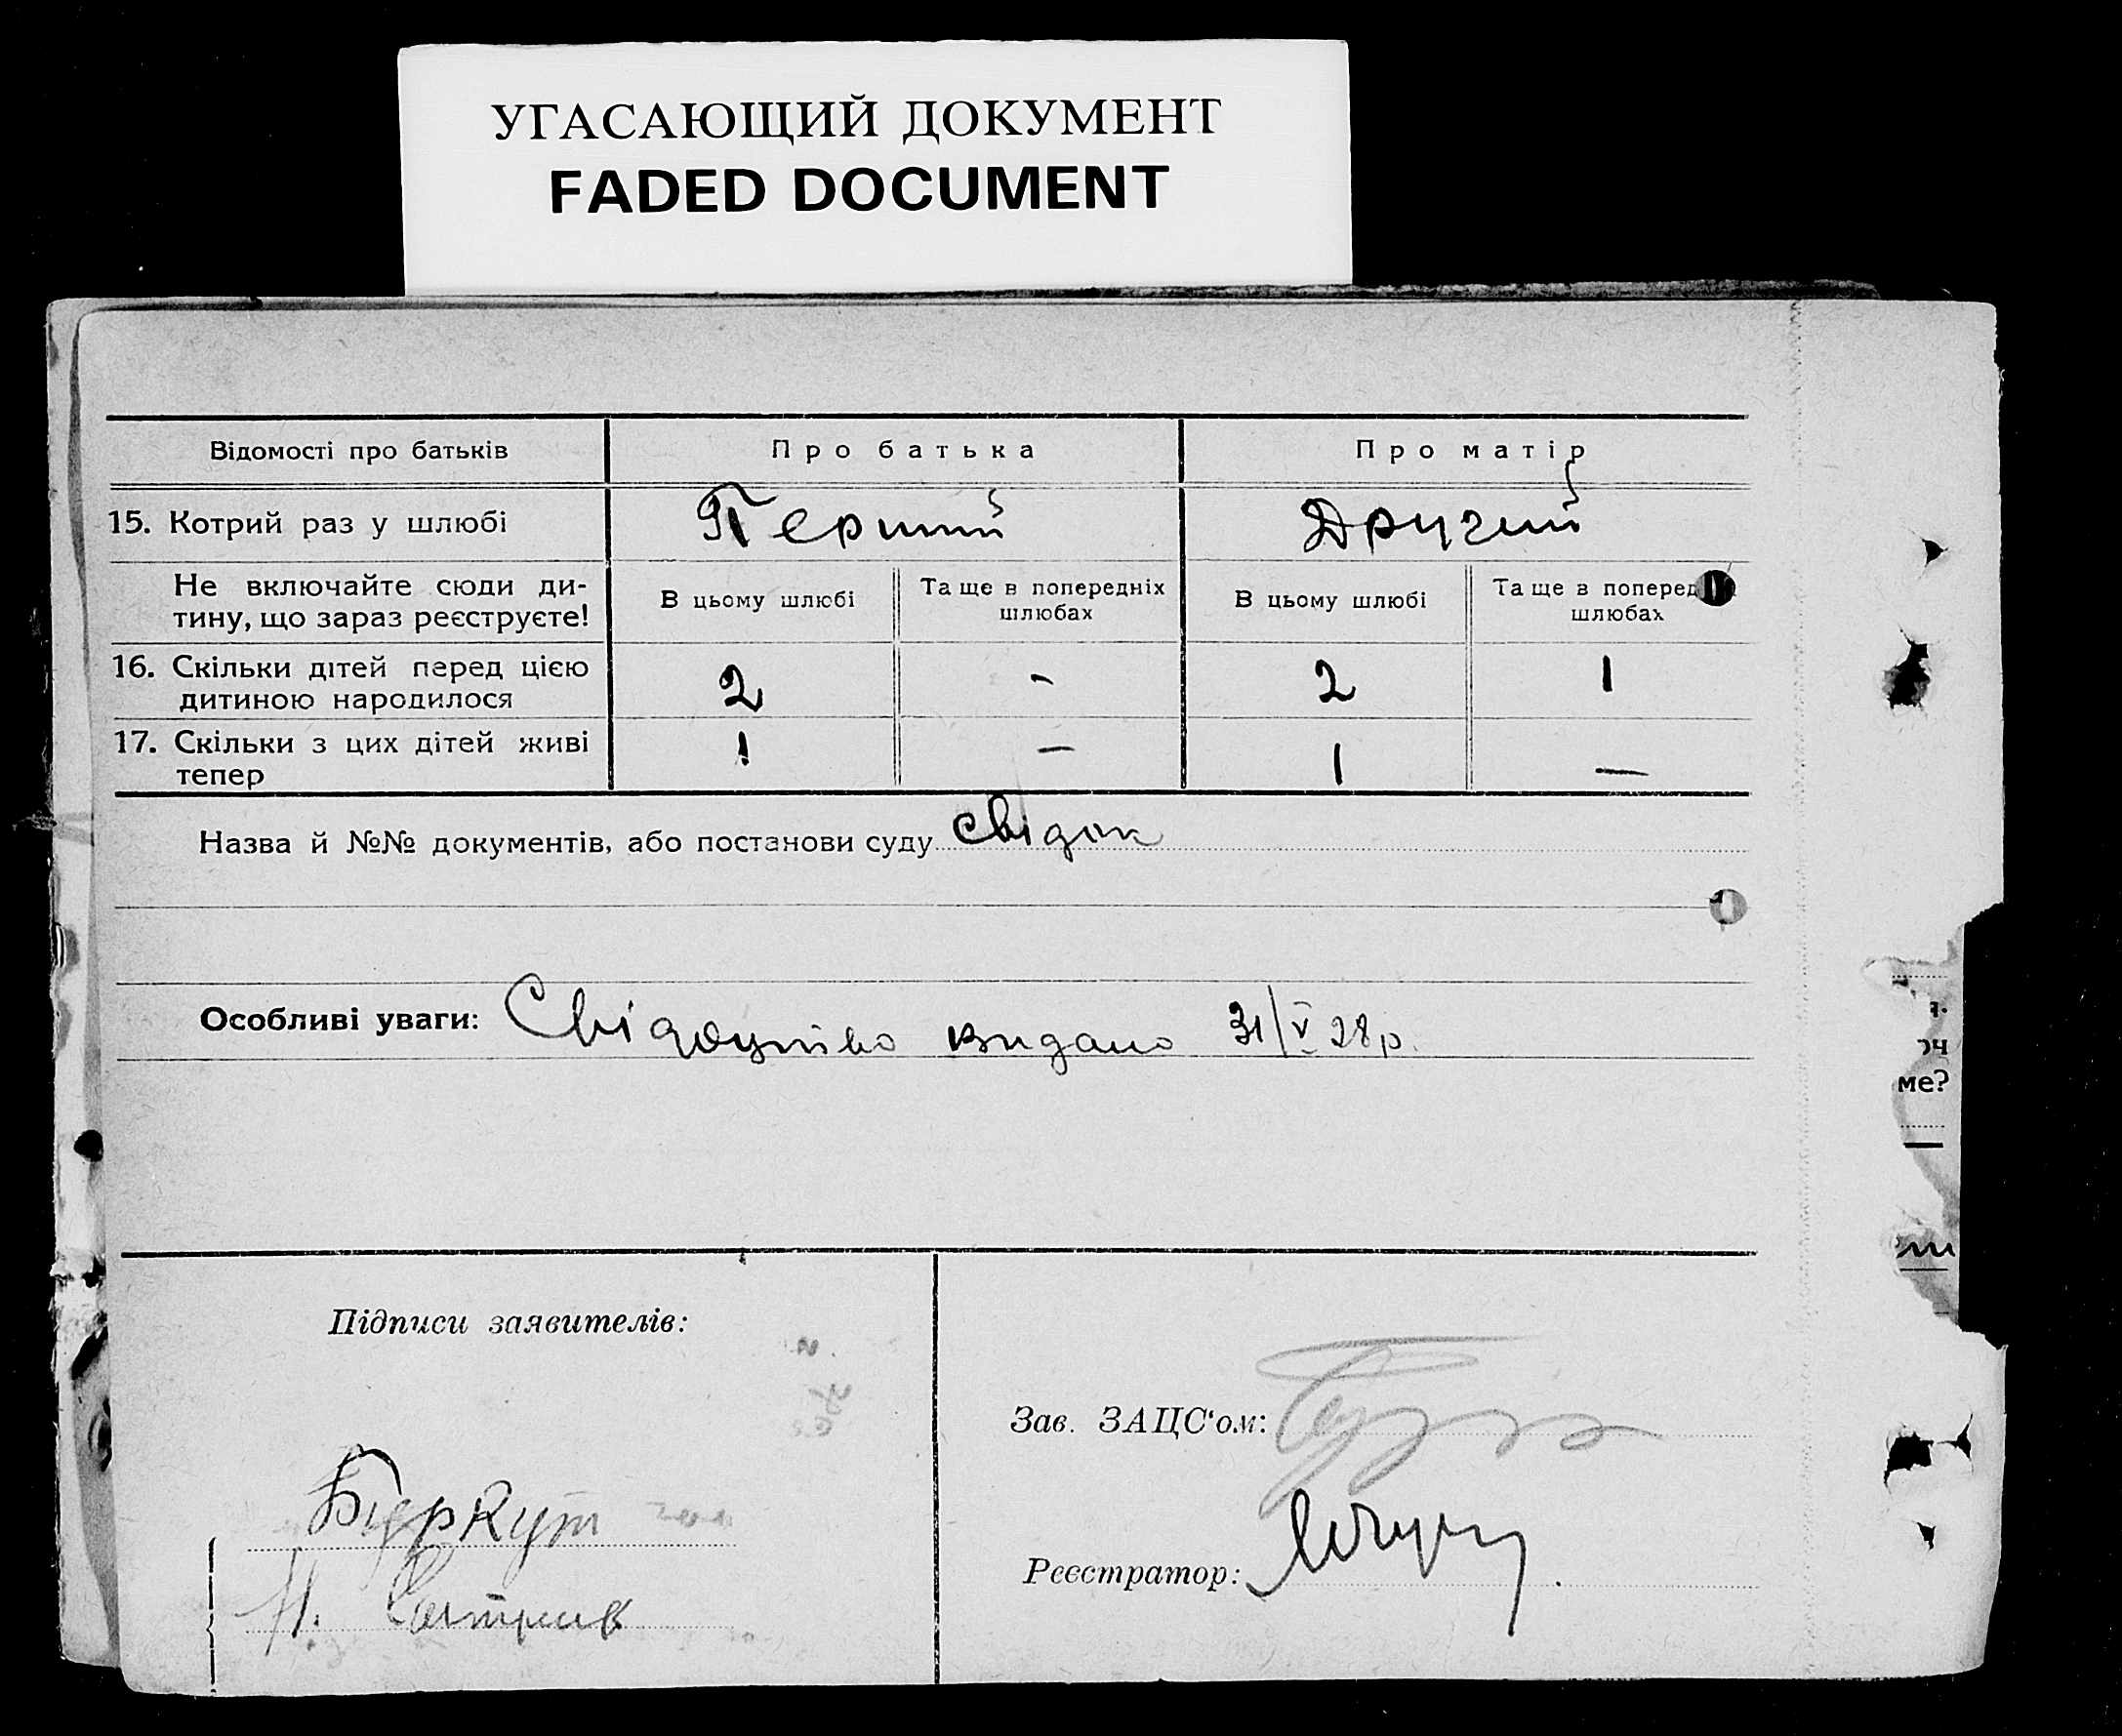 УГАСАЮЩИЙ ДОКУМЕНТ
FADED DOCUMENT
Відомості про батьків Про батька Про матір
15. Котрий раз у шлюбі Перший Другий
Не включайте сюди ди-
тину, що зараз реєструєте!
В цьому шлюбі
Та ще в попередніх
шлюбах
В цьому шлюбі
Та ще в поперед
шлюбах
16. Скільки дітей перед цією
дитиною народилося
2 - 2 1
17. Скільки з цих дітей живі
тепер
1 — 1 —
Назва й №№ документів, або постанови суду свідок
Особливі уваги: Свідоцтво видано 31/V 28 р.
Підписи заявителів:
Зав. ЗАЦС‘ом:
Беркут
Реєстратор:
Н.
ме?